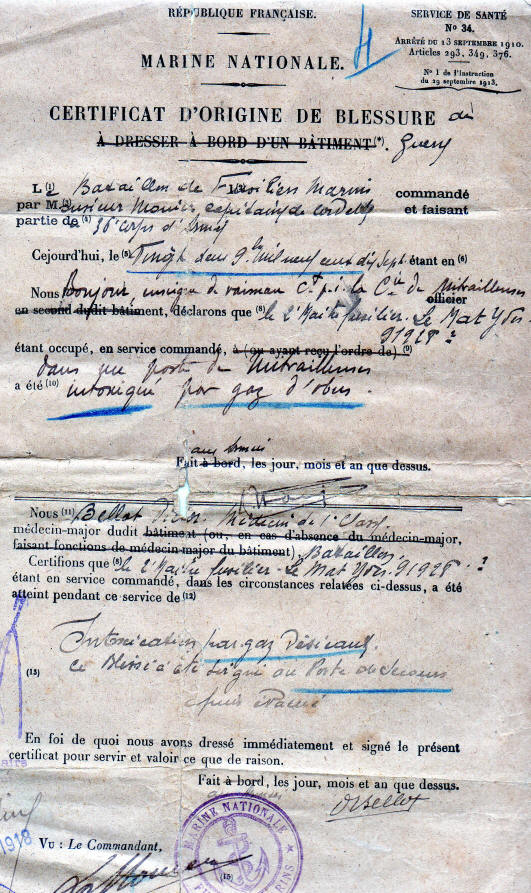 RÉPUBLIQUE FRANÇAISE.
SERVICE DE SANTÉ
N° 34.
ARRÊTÉ DU 13 SEPTEMBRE 1910.
Articles 293, 349, 376.
N° 1 de l'Instruction
du 29 septembre 1913.
MARINE NATIONALE.
CERTIFICAT D'ORIGINE DE BLESSURE de
À DRESSER À BORD D'UN BÂTIMENT(*). Guerre
Le (1) Bataillon de Fusiliers Marins commandé
par M. (3) onsieur Monier capitaine de corvette et faisant
partie de (4) 36e corps d'Armée
Cejourd'hui, le (5) Vingt deux 9bre mil neuf cent dix sept étant en (6)
Nous Bonjour, enseigne de vaisseau Ct p.i. la Cie de Mitrailleuses
officier
en second dudit bâtiment, déclarons que (8) le 2e Maître fusilier. Le Mat Yves
91928 2
étant occupé, en service commandé, à (ou ayant reçu l'ordre de) (9)
dans un poste de Mitrailleuses
a été (10) intoxiqué par gaz d'obus.
aux Armées
Fait à bord, les jour, mois et an que dessus.
Nous (11) Bellot Médecin de 1e Classe
médecin-major dudit bâtiment (ou, en cas d'absence du médecin-major,
faisant fonctions de médecin-major du bâtiment), Bataillon,
Certifions que (8) le 2e Maître fusilier Le Mat Yves 91928 2
étant en service commandé, dans les circonstances relatées ci-dessus, a été
atteint pendant ce service de (12)
Intoxication par gaz Vésicant
(13) ce Blessé a été soigné au Poste de Secours
puis évacué
En foi de quoi nous avons dressé immédiatement et signé le présent
certificat pour servir et valoir ce que de raison.
Fait à bord, les jour, mois et an que dessus.
aux Armées
Bellot
1918
Vu : Le Commandant,
(15)
MARINE NATIONALE